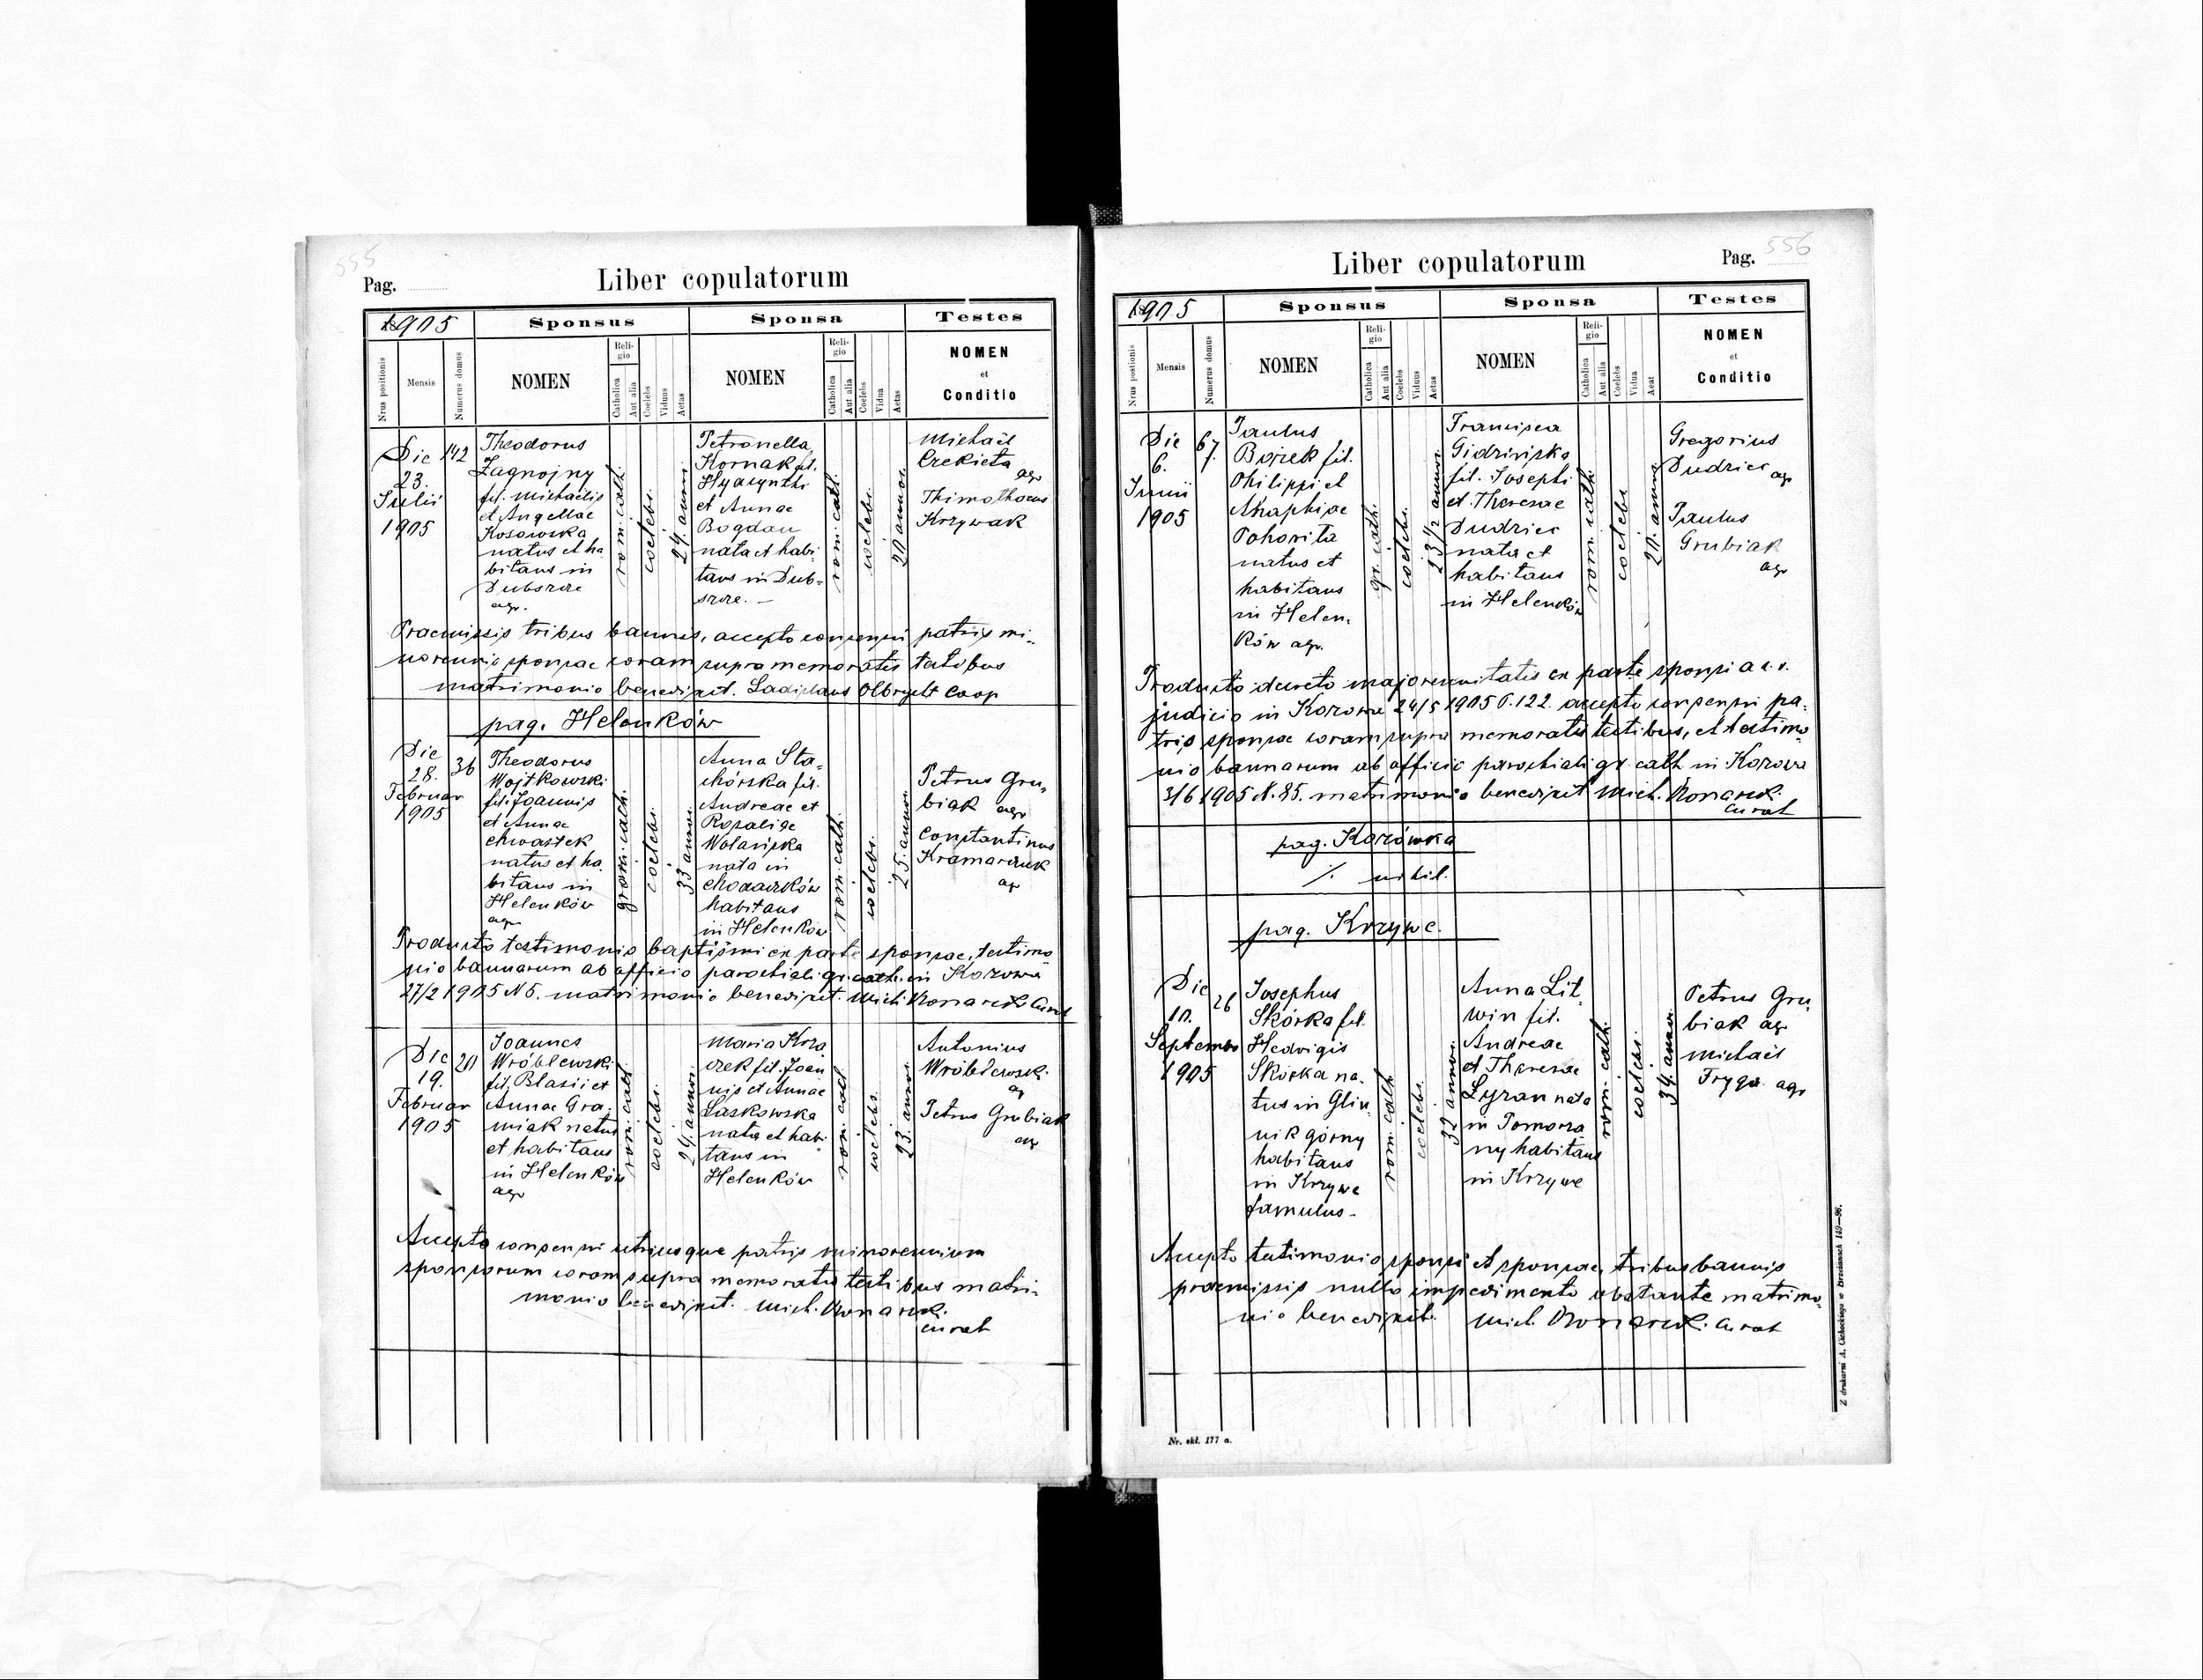 555
Pag.
Liber copulatorum
1905
Sponsus
Sponsa
Testes
Nrus positionis
Mensis
Numerus domus
NOMEN
Religio
Catholica
Aut alia
Coelebs
Viduus
Aetas
NOMEN
Religio
Catholica
Aut alia
Coelebs
Vidua
Aetas
NOMEN
et
Conditio
Die
23.
Julii
1905
142
Theodorus
Zagnojny
fil. Michaelis
et Angellae
Kosowska
natus et ha
bitans in
Dubszcze
agr.
rom. cath.
coelebs.
24 annor.
Petronella
Kornak fil.
Hyacynthi
et Annae
Bogdan
nata et habi-
tans in Dub-
szcze. -
rom. cath.
coelebs.
20 annor.
Michaël
Czekieta
agr
Thimotheus
Krzywak
Praemissis tribus bannis, accepto consensu patris mi-
norennis sponsae coram supra memoratis testibus
matrimonio benedixit. Ladislaus Olbrycht coop
pag. Helenków
Die
28.
Februar
1905
36
Theodorus
Wojtkowski
fil. Joannis
et Annae
Chwastek
natus et ha
bitans in
Helenków
agr
gr. rom. cath.
coelebs.
33 annor.
Anna Sta-
chórska fil.
Andreae et
Rosaliae
Wolanska
nata in
Chodaczków
habitans
in Helenków
rom. cath.
coelebs.
25 annor.
Petrus Gru-
biak agr
Constantinus
Kramarczuk
agr
Producto testimonio baptismi ex parte sponsae, testimo
nio bannarum ab officio parochiali gr. cath. in Kozowa
27/2 1905 N 5. matrimonio benedixit. Mich. Konarek. Curat
Die
19.
Februar
1905
20
Joannes
Wróblewski
fil. Blasii et
Annae Gra-
miak natus
et habitans
in Helenków
agr
rom. cath.
coelebs.
24 annor.
Maria Kora
czek fil. Joan
nis et Annae
Laskowska
nata et habi
tans in
Helenków
rom. cath.
coelebs.
23. annor.
Antonius
Wróblewski
agr
Petrus Grubiak
agr
Accepto consensu utriusque patris minorennium
sponsorum coram supra memoratis testibus matri-
monio benedixit. Mich. Konarek.
Curat
556
Pag.
Liber copulatorum
1905
Sponsus
Sponsa
Testes
Nrus positionis
Mensis
Numerus domus
NOMEN
Religio
Catholica
Aut alia
Coelebs
Viduus
Aetas
NOMEN
Religio
Catholica
Aut alia
Coelebs
Vidua
Aeat
NOMEN
et
Conditio
Die
6.
Junii
1905
67.
Paulus
Bojrek fil.
Philippi et
Anaphiae
Pohorita
natus et
habitans
in Helen-
ków agr.
gr. cath.
coelebs.
23 1/2 annor.
Francisca
Gidzinska
fil. Josephi
et Theresae
Dudziec
nata et
habitans
in Helenków
rom. cath.
coelebs
20. annor
Gregorius
Dudziec agr
Paulus
Grubiak
agr
Producto decreto majorennitatis ex parte sponsi a c. r.
judicio in Kozowa 24/5 1905 P. 122. accepto consensu pa-
tris sponsae coram supra memoratis testibus, et testimo-
nio bannarum ab officio parochiali gr. cath in Kozowa
3/6 1905 N. 85. matrimonio benedixit Mich. Konarek.
Curat
pag. Kozówka
/. nihil.
pag. Krzywe.
Die
10.
Septembr
1905
26
Josephus
Skórka fil.
Hedvigis
Skórka na-
tus in Glin-
nik górny
habitans
in Krzywe
famulus-
rom. cath
coelebs
32 annor.
Anna Lit-
win fil.
Andreae
et Theresae
Lyzan nata
in Pomorza
ny habitans
in Krzywe
rom. cath.
coelebs.
34. annor.
Petrus Gru-
biak agr
Michaël
Fryga agr
Accepto testimonio sponsi et sponsae, tribus bannis
praemissis nullo impedimento obstante matrimo-
nio benedixit. Mich. Konarek. Curat
Nr. skł. 177 a.
Z drukarni A. Cichockiego w Brzeżanach 149—96.